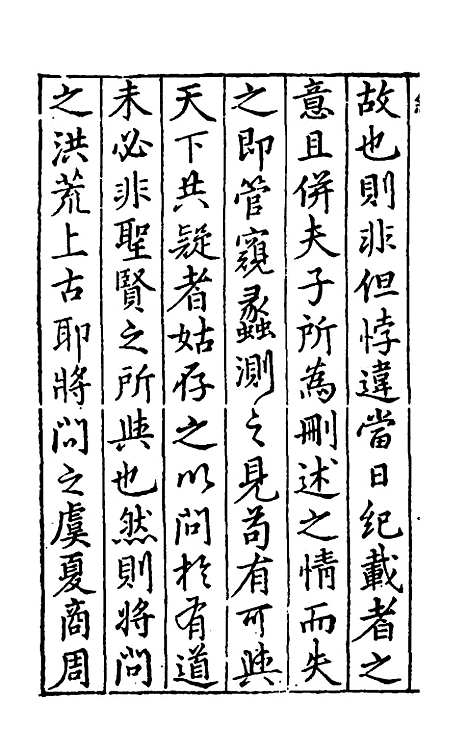 故也則非但悖違當日紀載者之
意且併夫子所為刪述之情而失
之即管窺蠡測之見苟有可與
天下共疑者姑存之以問於有道
未必非聖賢之所與也然則將問
之洪荒上古耶將問之虞夏商周